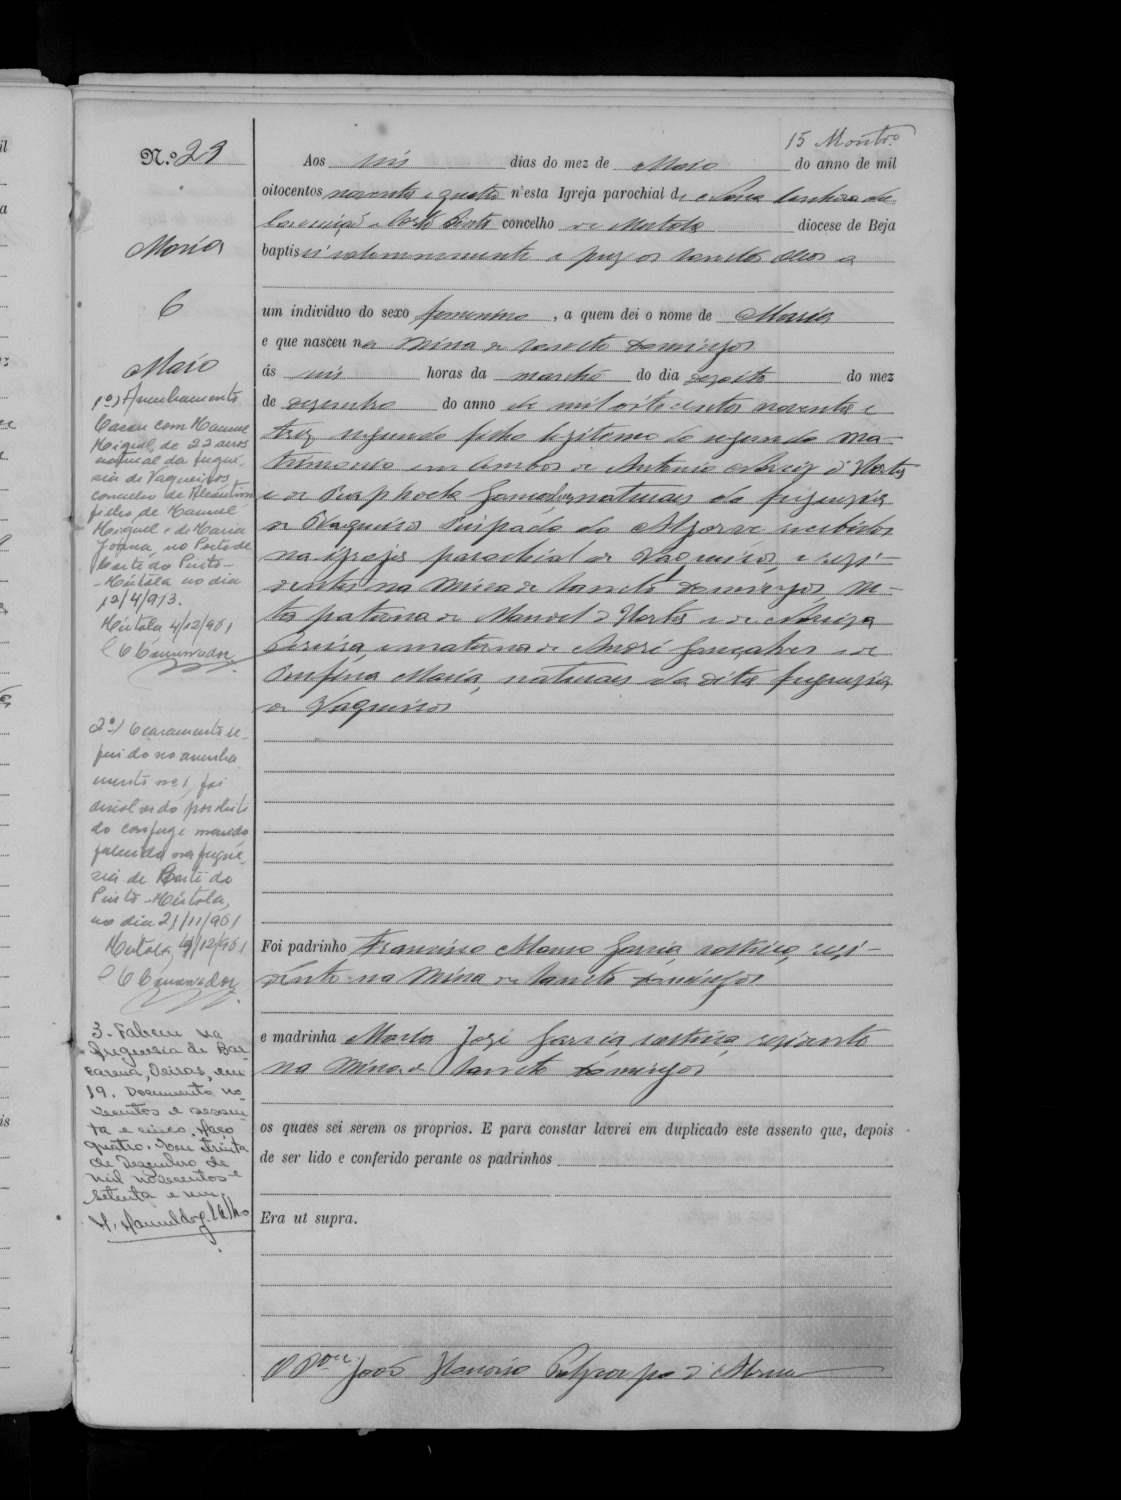 15
N.º 29
Aos seis dias do mez de Maio do anno de mil
oitocentos noventa e quatro n'esta Igreja parochial de
concelho de Mertola diocese de Beja
baptisei solemnemente e puz os sanctos oleos a
Maria
6
Maio
um individuo do sexo feminino, a quem dei o nome de Maria
e que nasceu na Mina de Sancto Domingos
ás seis horas da manhã do dia dezoito do mez
de dezembro do anno de mil oito centos noventa e
trez segundo filho legitimo do segundo ma-
trimonio em ambos de Antonio d'Horta
e de naturaes da freguezia
de Vaqueiros Bispado do Algarve recebidos
na igreja parochial de Vaqueiros, e resi-
dentes na Mina de Sancto Domingos ne-
ta paterna de Manoel d'Horta e de
Pereira e materna de André Gonçalves e de
Maria, naturaes da dita freguezia
de Vaqueiros
Foi padrinho Francisco Garcia, resi-
dente na Mina de Sancto Domingos
e madrinha José Garcia, residente
na Mina de Sancto Domingos
os quaes sei serem os proprios. E para constar lavrei em duplicado este assento que, depois
de ser lido e conferido perante os padrinhos
Era ut supra.
João
1º) Averbamento
Casou com Manuel
Miguel, de 22 anos
natural da fregue-
sia de Vaqueiros
concelho de Alcoutim
filho de Manuel
Miguel e de Maria
Joana, no Posto de
Corte do Pinto-
-Mértola no dia
12/4/913.
Mértola 4/12/961
O Conservador
2º) O casamento re-
ferido no averba-
mento nº 1, foi
dissolvido por óbito
do conjuge marido
falecido na fregue-
sia de Corte do
Pinto-Mértola,
no dia 21/11/961
Mértola, 4/12/961
O Conservador
3. Faleceu na
freguesia de Bar-
carena, Oeiras, em
19. Documento no-
vecentos e sessen-
ta e cinco. Maço
quatro. Em trinta
de Dezembro de
mil novecentos e
setenta e um.